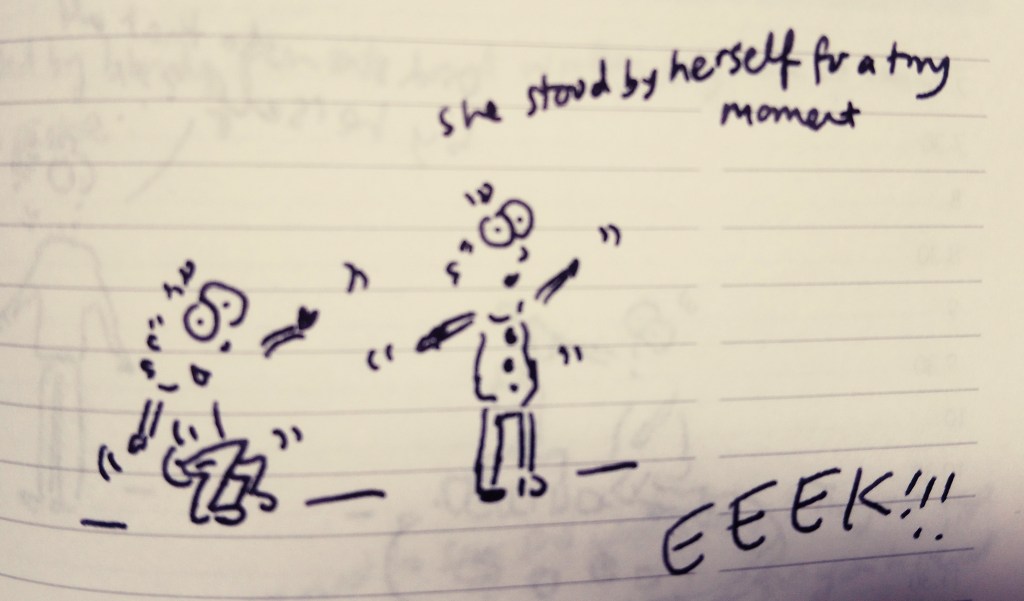 she stood by herself for a tiny
moment
EEEK!!!